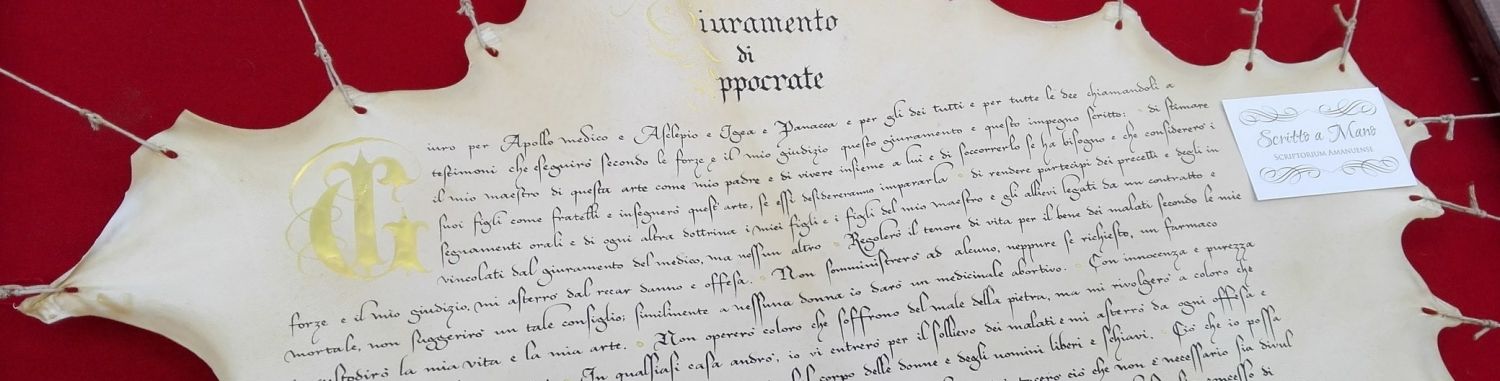 Giuramento
di
Ippocrate
Giuro per Apollo medico e Asclepio e Igea e Panacea e per gli dei tutti e per tutte le dee chiamandoli a
testimoni che eseguirò secondo le forze e il mio giudizio questo giuramento e questo impegno scritto: di stimare
il mio maestro di questa arte come mio padre e di vivere insieme a lui e di soccorrerlo se ha bisogno e che considererò i
suoi figli come fratelli e insegnerò quest'arte, se essi desidereranno impararla di rendere partecipi dei precetti e degli in
segnamenti orali e di ogni altra dottrina i miei figli e i figli del mio maestro e gli allievi legati da un contratto e
vincolati dal giuramento del medico, ma nessun altro Regolerò il tenore di vita per il bene dei malati secondo le mie
forze e il mio giudizio, mi asterrò dal recar danno e offesa. Non somministrerò ad alcuno, neppure se richiesto, un farmaco
mortale, non suggerirò un tale consiglio; similmente a nessuna donna io darò un medicinale abortivo. Con innocenza e purezza
custodirò la mia vita e la mia arte. Non opererò coloro che soffrono del male della pietra, ma mi rivolgerò a coloro che
In qualsiasi casa andrò, io vi entrerò per il sollievo dei malati e mi asterrò da ogni offesa e
corpo delle donne e degli uomini liberi e schiavi. Ciò che io possa
ciò che non è necessario sia divul
Scritto a Mano
SCRIPTORIUM AMANUENSE